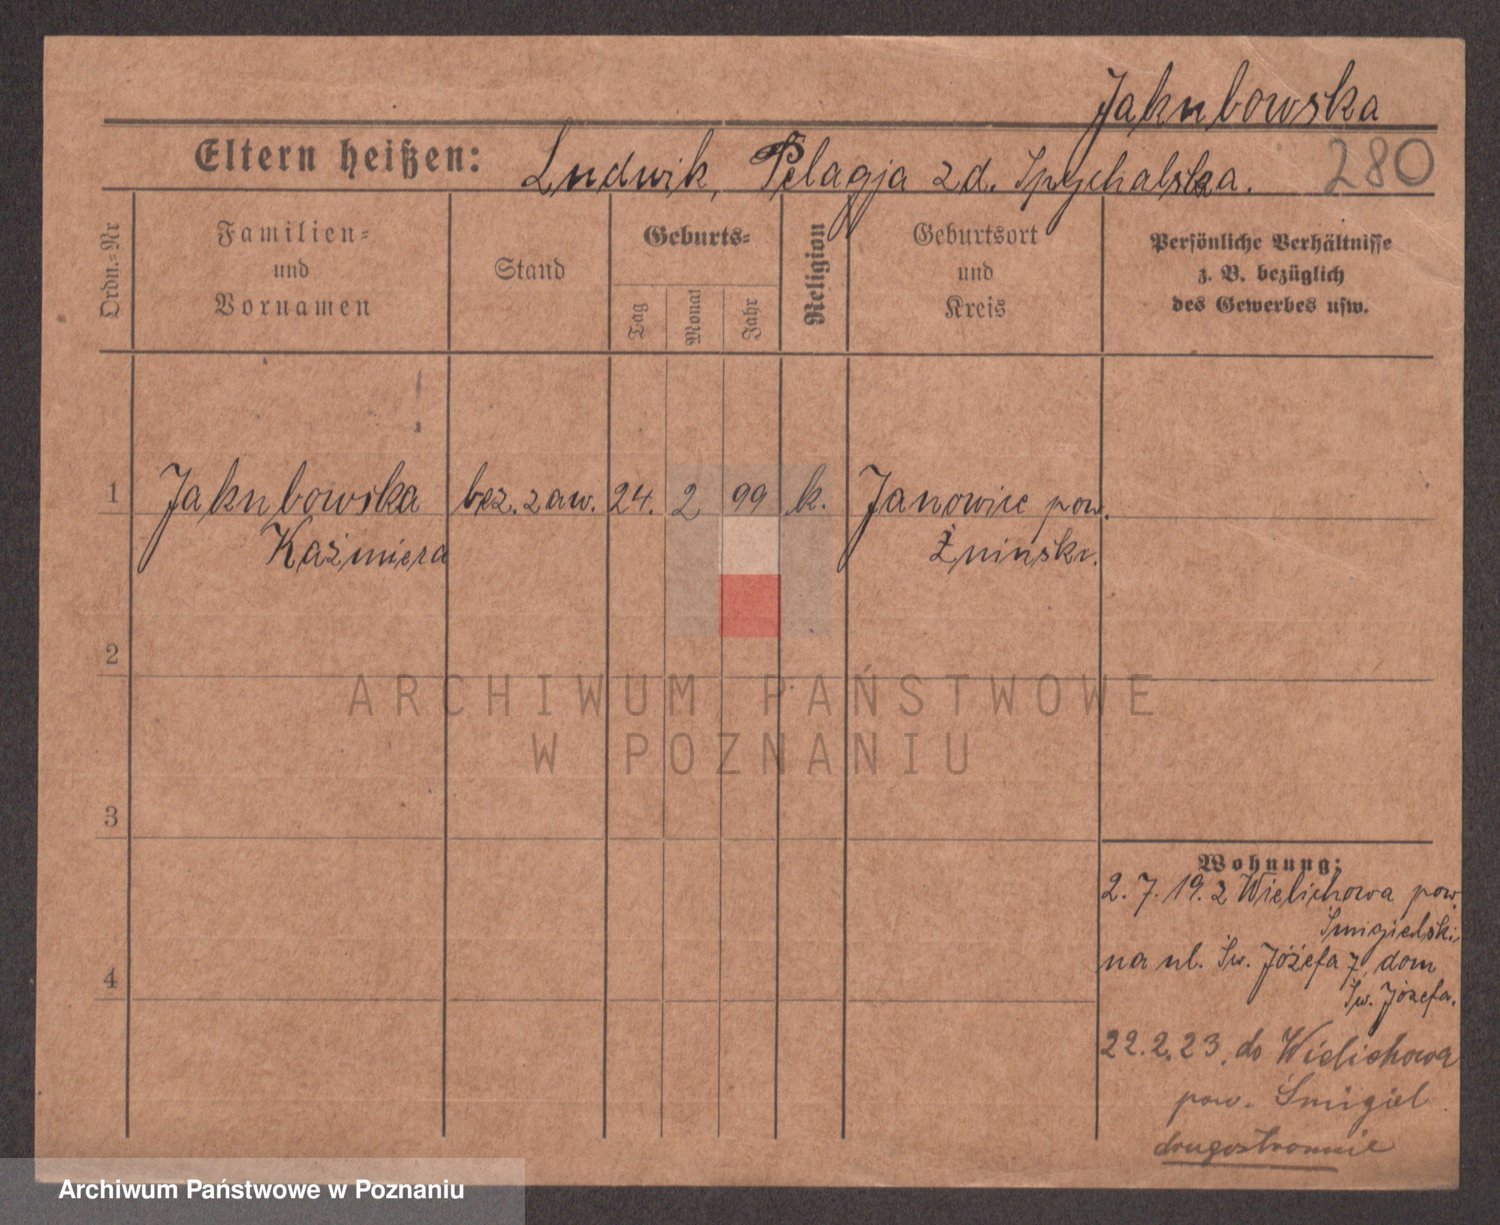 Jakubowska
Eltern heißen: Ludwik, Pelagja zd. Spychalska.
280
Ordn.-Nr
Familien-
und
Vornamen
Stand
Geburts-
Tag
Monat
Jahr
Religion
Geburtsort
und
Kreis
Persönliche Verhältnisse
z. B. bezüglich
des Gewerbes usw.
1 Jakubowska bez. zaw. 24. 2 99 k. Janowiec pow.
Kaźmiera Żniński.
2
ARCHIWUM PAŃSTWOWE
W POZNANIU
3
4
Wohnung:
2. 7. 19. z Wielichowa pow.
Śmigielski
na ul. Św. Józefa 7, dom
Św. Józefa.
22.2.23. do Wielichowa
pow. Śmigiel
drugostronnie
Archiwum Państwowe w Poznaniu